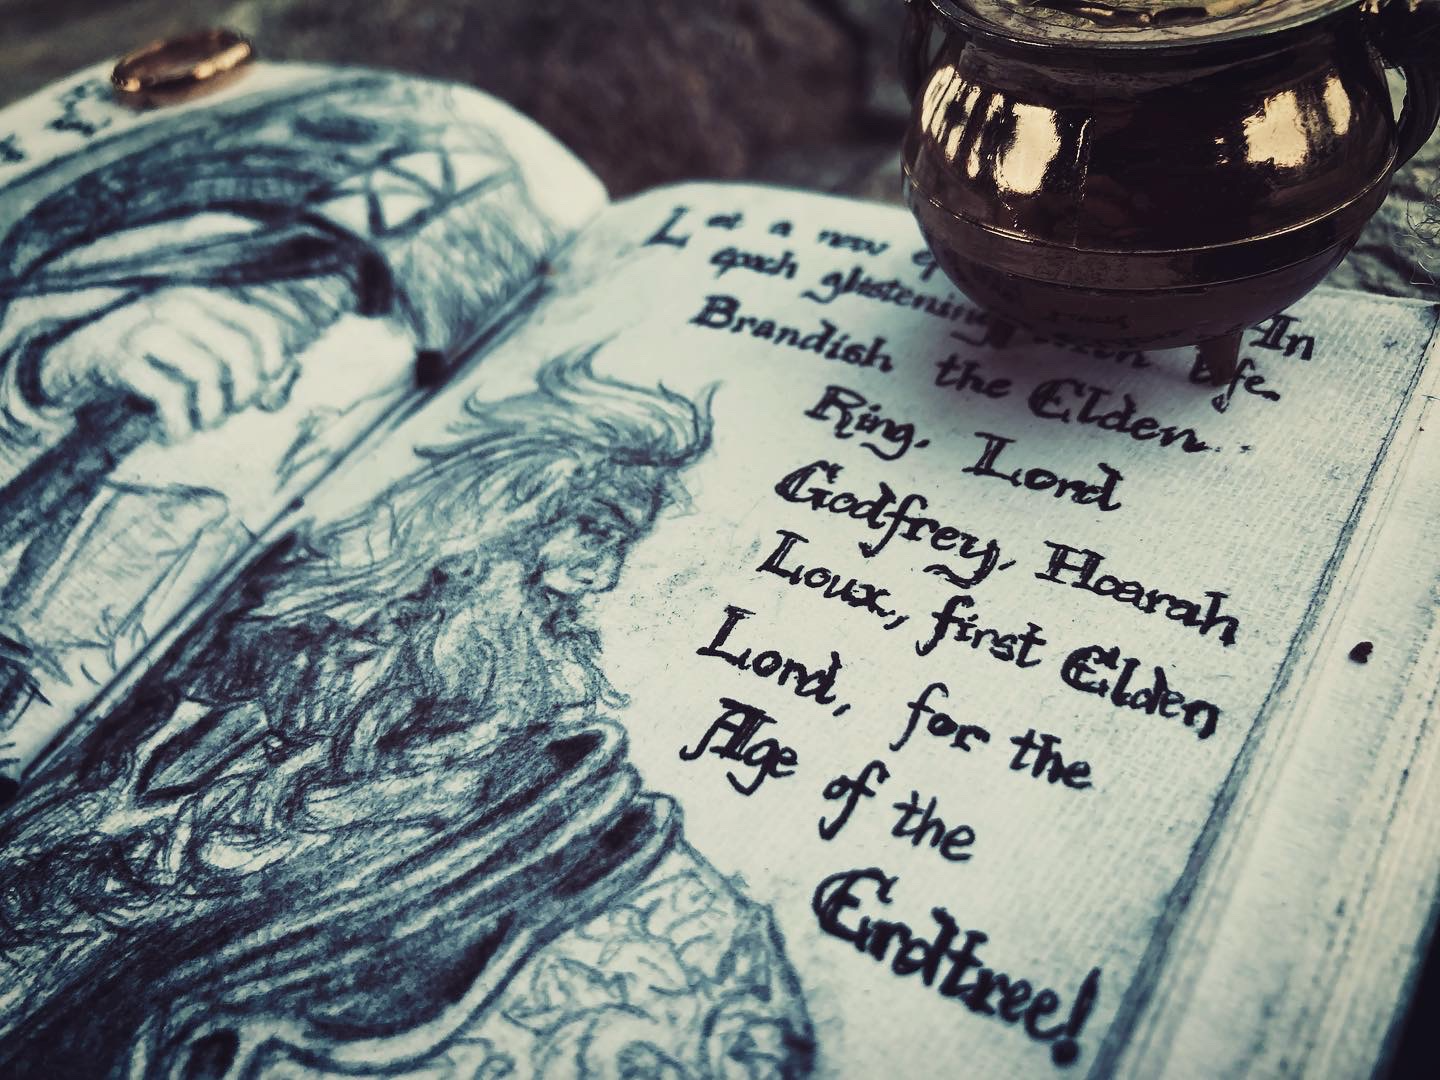 Let a new An
epoch glistening life.
Brandish the Elden
Ring, Lord
Godfrey, Hoarah
Loux, first Elden
Lord, for the
Age of the
Erdtree!